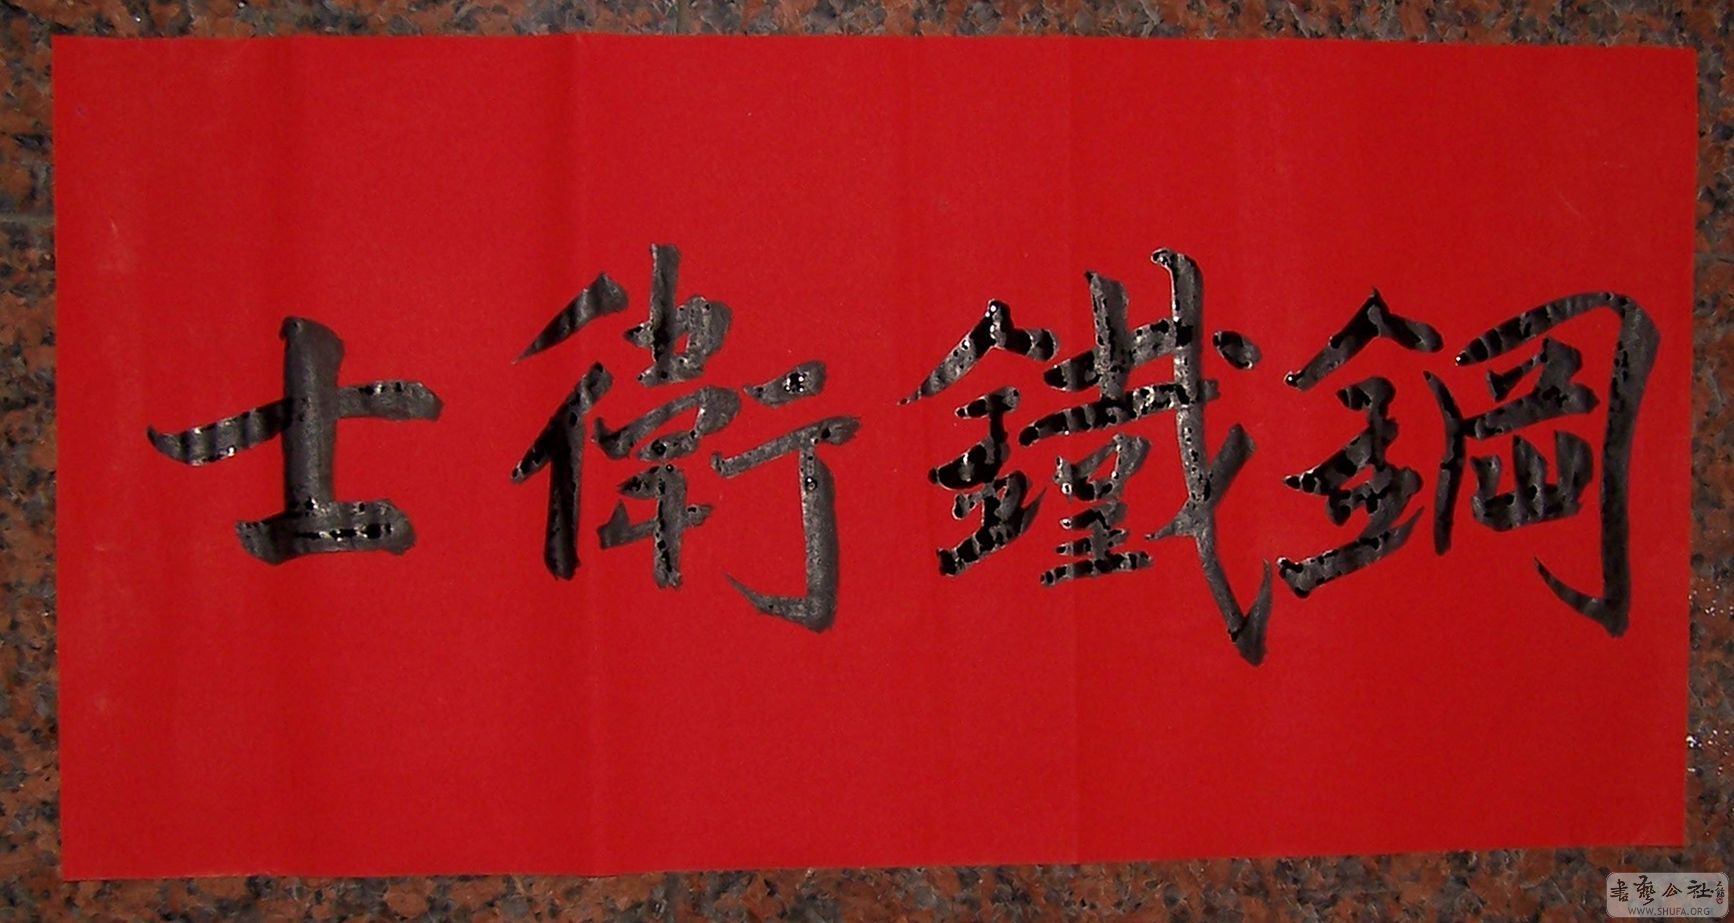 鋼鐵衛士
書藝公社
WWW.SHUFA.ORG